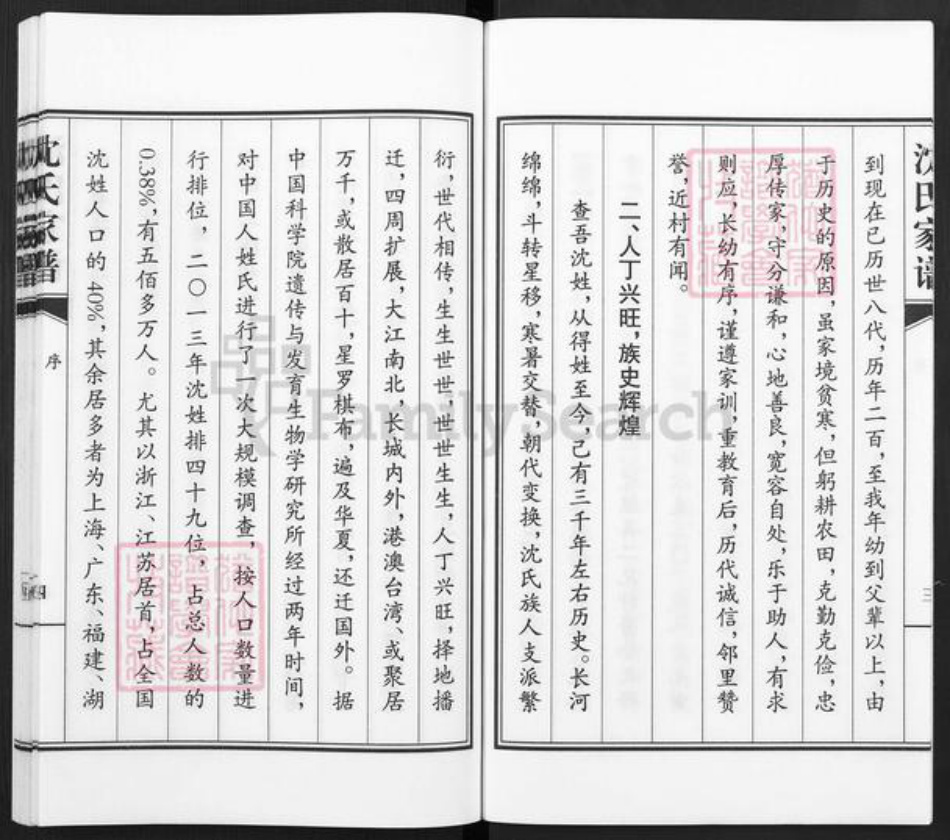 沈氏家谱
三
到现在已历世八代，历年二百，至我年幼到父辈以上，由
于历史的原因，虽家境贫寒，但躬耕农田，克勤克俭，忠
厚传家，守分谦和，心地善良，宽容自处，乐于助人，有求
则应，长幼有序，谨遵家训，重教育后，历代诚信，邻里赞
誉，近村有闻。
二、人丁兴旺，族史辉煌
查吾沈姓，从得姓至今，己有三千年左右历史。长河
绵绵，斗转星移，寒暑交替，朝代变换，沈氏族人支派繁
衍，世代相传，生生世世，世世生生，人丁兴旺，择地播
迁，四周扩展，大江南北，长城内外，港澳台湾、或聚居
万千，或散居百十，星罗棋布，遍及华夏，还迁国外。据
中国科学院遗传与发育生物学研究所经过两年时间，
对中国人姓氏进行了一次大规模调查，按人口数量进
行排位，二〇一三年沈姓排四十九位，占总人数的
0.38%，有五佰多万人。尤其以浙江、江苏居首，占全国
沈姓人口的40%，其余居多者为上海、广东、福建、湖
沈氏家谱
序
四
FamilySearch